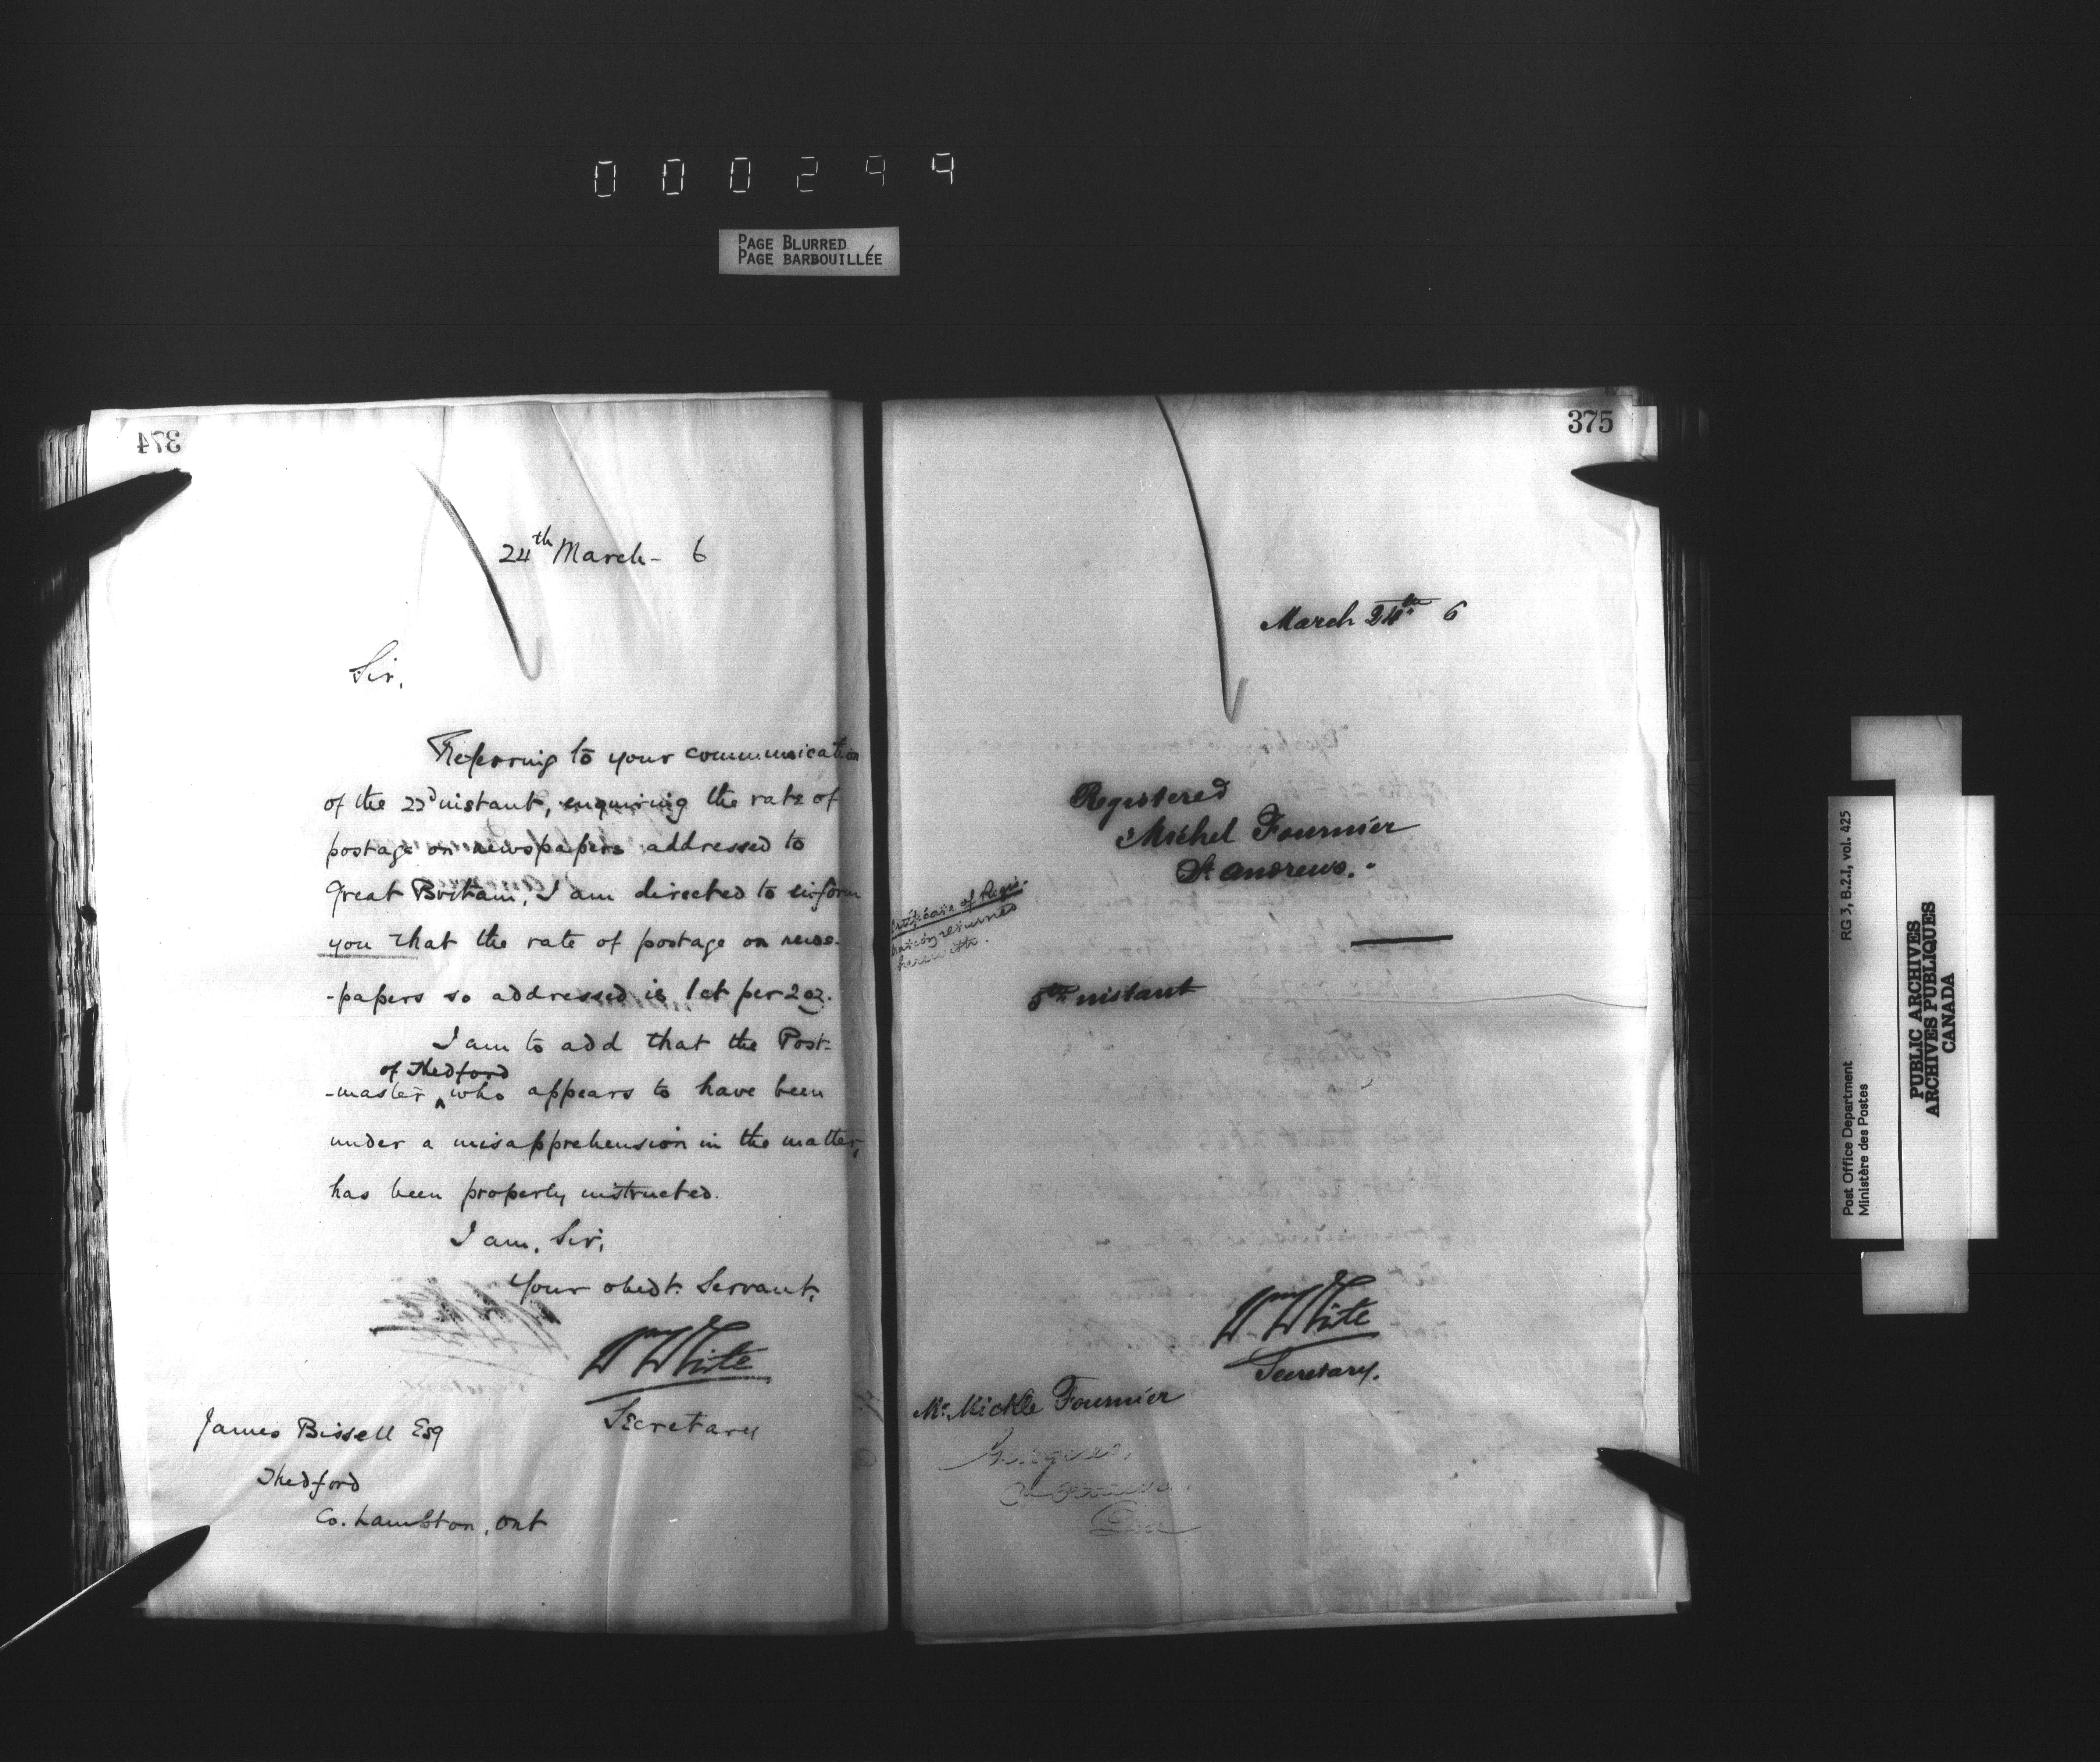 000299
PAGE BLURRED
PAGE BARBOUILLÉE
374
24th March - 6
Sir,
Referring to your communication
of the 22d instant, enquiring the rate of
postage on newspapers addressed to
Great Britain, I am directed to inform
you that the rate of postage on news-
-papers so addressed is 1ct per 2 oz.
I am to add that the Post-
of Thedford
-master ^ who appears to have been
under a misapprehension in the matter,
has been properly instructed.
I am, Sir,
Your obedt. Servant,
Wm White
Secretary
James Bissell Esq
Thedford
Co. Lambton, Ont
375
March 24th 6
Registered
Michel Fournier
St. Andrews.
Certificate of Regis-
tration returned
herewith.
5th instant
Wm White
Secretary.
Mr. Mickle Fournier
Post Office Department
Ministère des Postes
RG 3, B.2.I, vol. 425
PUBLIC ARCHIVES
ARCHIVES PUBLIQUES
CANADA